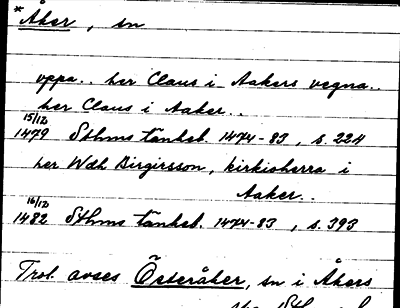 *Åker, sn
uppa.. her Claus i Aakers vegna..
her Claus i Aaker..
15/12
1479 Sthms tänkeb. 1474-83, s. 224
her Wdh Birgirsson, kirkioherra i
Aaker..
16/12
1482 Sthms tänkeb. 1474-83, s. 393
Trol. avses Österåker, sn i Åkers